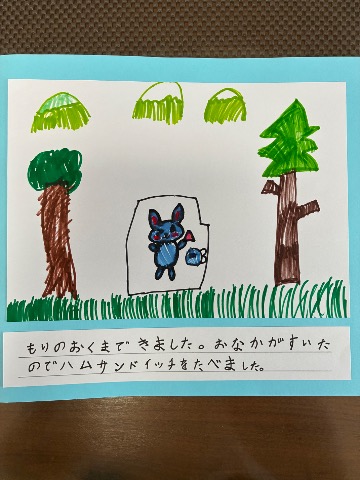 もりのおくまできました。おなかがすいた
のでハムサンドイッチをたべました。